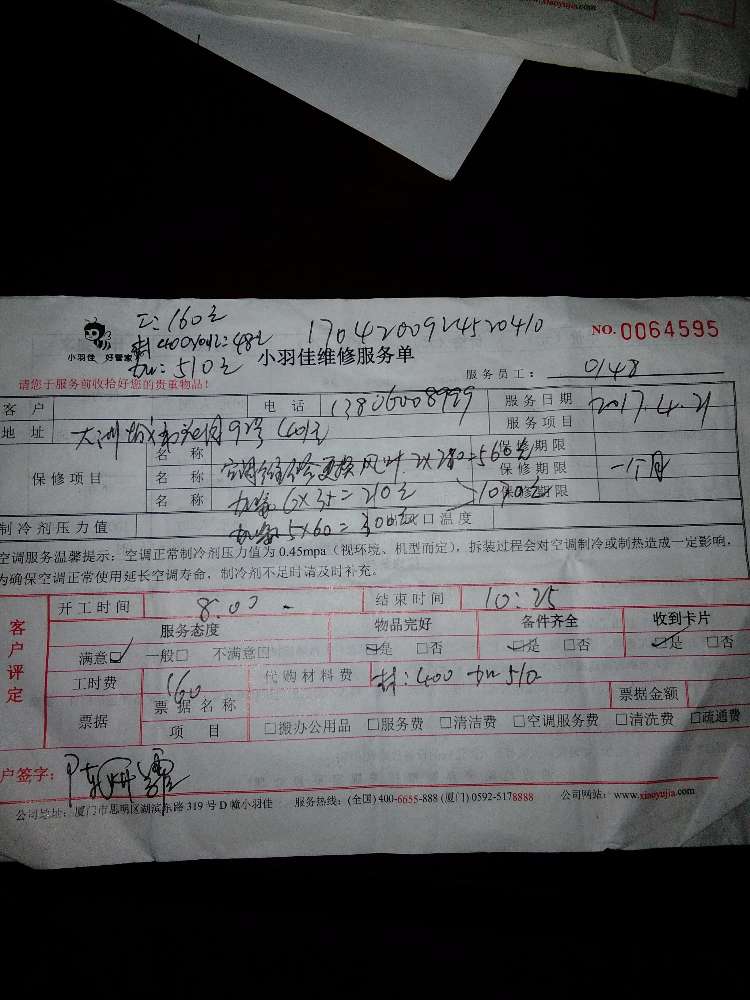 www.xiaoyujia.com
工:160元
料400×0.12:48元
加:510元
1704200924520410
小羽佳 好管家
小羽佳维修服务单
NO. 0064595
请您于服务前收拾好您的贵重物品!
服务员工: 0148
客户
电话 13806008999
服务日期 2017.4.21
地址
服务项目
保修项目
名称 空调维修更换风叶 2×280=560元
保修期限
名称 加氟 6×35=210元
保修期限 一个月
名称 5×60=300元
保修期限
制冷剂压力值
口温度
空调服务温馨提示:空调正常制冷剂压力值为 0.45mpa(视环境、机型而定),拆装过程会对空调制冷或制热造成一定影响,
为确保空调正常使用延长空调寿命,制冷剂不足时请及时补充。
客户评定
开工时间 8:00
结束时间 10:25
服务态度 物品完好 备件齐全 收到卡片
满意☑ 一般□ 不满意□ ☑是 □否 ☑是 □否 ☑是 □否
工时费 160
代购材料费 材:400 加510
票据
票据名称
票据金额
项目 □搬办公用品 □服务费 □清洁费 □空调服务费 □清洗费 □疏通费
户签字:
公司地址:厦门市思明区湖滨东路 319 号 D 幢小羽佳 服务热线:(全国)400-6655-888 (厦门) 0592-5178888 公司网站:www.xiaoyujia.com